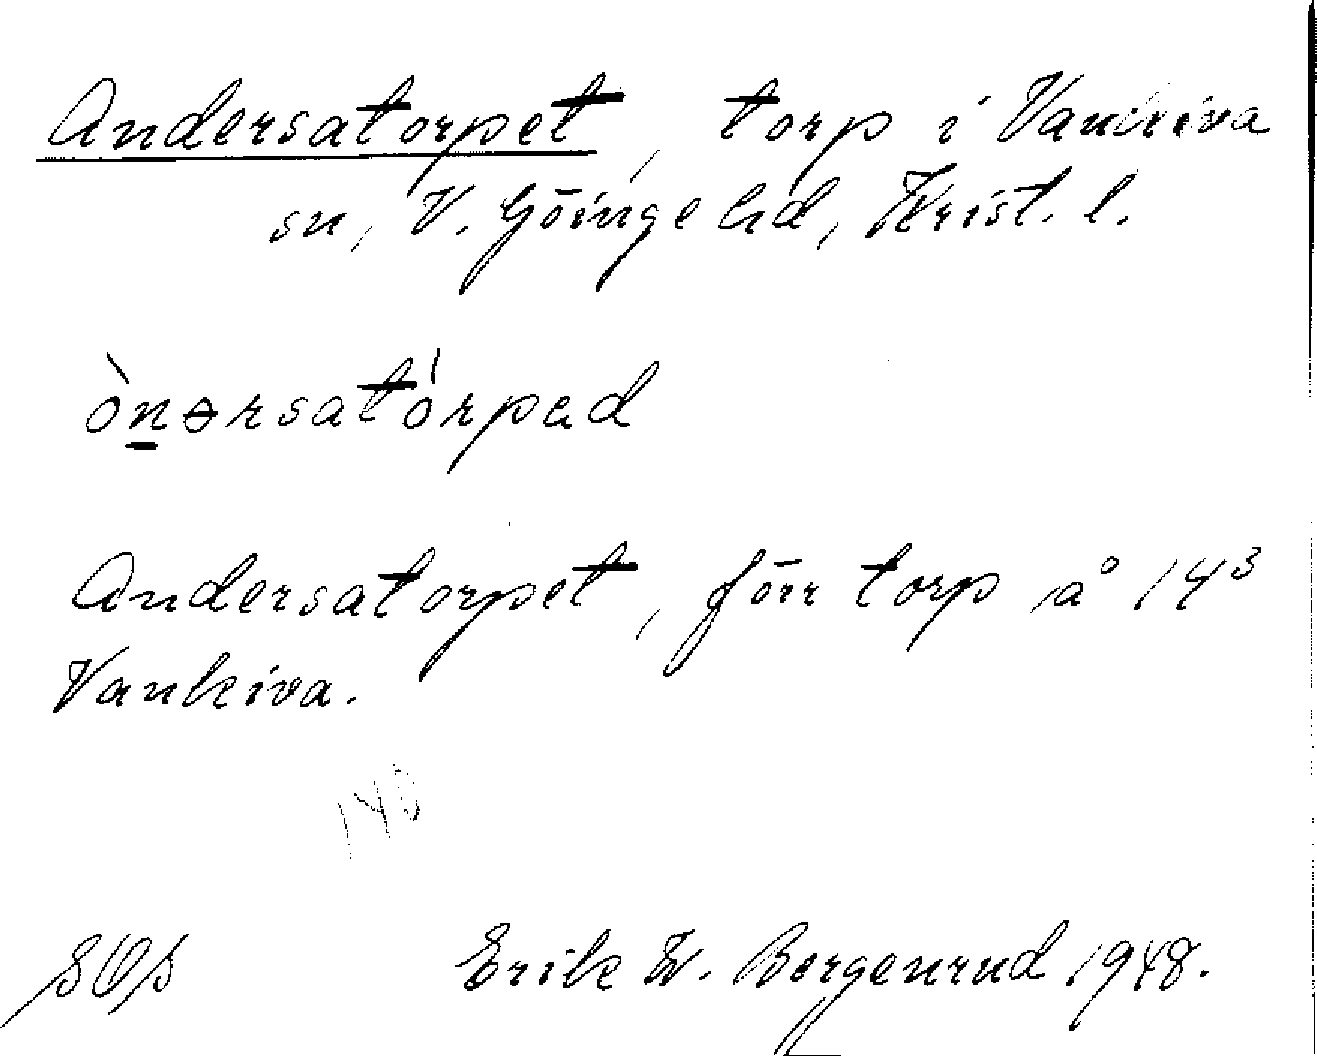 Andersatorpet, torp i Vankiva
sn, V. Göinge hd, Krist. l.
ònərsatórpəd
Andersatorpet, förr torp å 14³
Vankiva.
140
Erik W. Bergenrud 1948.